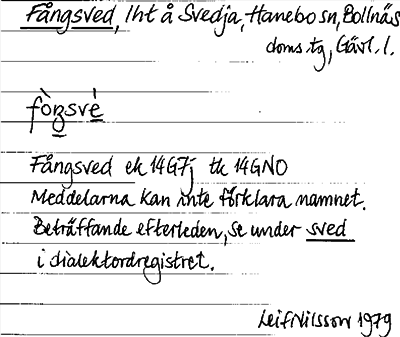 Fångsved, lht å Svedja, Hanebo sn, Bollnäs
doms.tg, Gävl. l.
fòŋsvé
Fångsved ek 14G7j tk 14GNO
Meddelarna kan inte förklara namnet.
Beträffande efterleden, se under sved
i dialektordregistret.
Leif Nilsson 1979